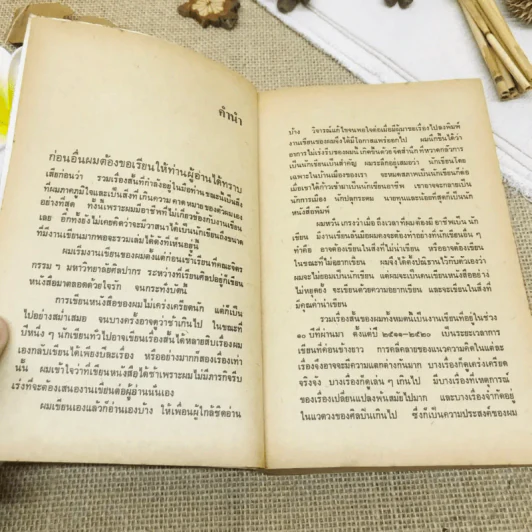 คำนำ
ก่อนอื่นผมต้องขอเรียนให้ท่านผู้อ่านได้ทราบ
เสียก่อนว่า รวมเรื่องสั้นที่กำลังอยู่ในมือท่านขณะนี้เป็นสิ่ง
ที่ผมภาคภูมิใจและเป็นสิ่งที่เกินความคาดหมายของตัวผมเอง
อย่างที่สุด ทั้งนี้เพราะผมมีอาชีพที่ไม่เกี่ยวข้องกับงานเขียน
เลย อีกทั้งยังไม่เคยคิดว่าจะมีวาสนาได้เป็นนักเขียนถึงขนาด
ที่มีงานเขียนมากพอจะรวมเล่มได้ดังที่เห็นอยู่นี้
ผมเริ่มงานเขียนของผมตั้งแต่ก่อนเข้าเรียนที่คณะจิตร
กรรม ฯ มหาวิทยาลัยศิลปากร ระหว่างที่เรียนศิลปอยู่ก็เขียน
หนังสือมาตลอดด้วยใจรัก จนกระทั่งบัดนี้
การเขียนหนังสือของผมไม่เคร่งเครียดนัก แต่ก็เป็น
ไปอย่างสม่ำเสมอ จนบางครั้งอาจดูว่าช้าเกินไป ในขณะที่
ปีหนึ่ง ๆ นักเขียนทั่วไปอาจเขียนเรื่องสั้นได้หลายสิบเรื่องผม
เองกลับเขียนได้เพียงบางเรื่อง หรืออย่างมากก็สองเรื่องเท่า
นั้น ผมเข้าใจว่าที่เขียนหนังสือได้ช้าเพราะผมไม่มีภารกิจรีบ
เร่งที่จะต้องเสนองานเขียนต่อผู้อ่านนั่นเอง
ผมเขียนเองแล้วก็อ่านเองบ้าง ให้เพื่อนผู้ใกล้ชิดอ่าน
บ้าง วิจารณ์แก้ไขจนพอใจต่อเมื่อมีผู้มาขอเรื่องไปลงพิมพ์
งานเขียนของผมจึงได้มีโอกาสแพร่ออกไป ผมนึกขึ้นได้ว่า
อาการไม่เร่งรีบของผมนี้เกิดขึ้นด้วยจิตสำนึกที่หวาดกลัวการ
เป็นนักเขียนเป็นสำคัญ ผมระลึกอยู่เสมอว่า นักเขียนโดย
เฉพาะในบ้านเมืองของเรา จะหมดสภาพเป็นนักเขียนก็ต่อ
เมื่อเขาได้ก้าวเข้ามาเป็นนักเขียนอาชีพ เขาอาจจะกลายเป็น
นักการเมือง นักปลุกระดม นายทุนและน้อยที่สุดก็เป็นนัก
หนังสือพิมพ์
ผมหวั่นเกรงว่าเมื่อถึงเวลาที่ผมต้องมีอาชีพเป็นนัก
เขียน มีงานเขียนอันมีอผมคงจะต้องทำอย่างที่นักเขียนอื่น ๆ
ทำคือ อาจต้องเขียนในสิ่งที่ไม่น่าเขียน หรืออาจต้องเขียน
ในขณะที่ไม่อยากเขียน ผมจึงได้ตั้งปณิธานไว้กับตัวเองว่า
ผมจะไม่ยอมเป็นนักเขียน แต่ผมจะเป็นคนเขียนหนังสืออย่าง
ไม่หยุดยั้ง จะเขียนด้วยความอยากเขียน และจะเขียนในสิ่งที่
มีคุณค่าน่าเขียน
รวมเรื่องสั้นของผมทั้งหมดนี้เป็นงานเขียนที่อยู่ในช่วง
๑๐ ปีที่ผ่านมา ตั้งแต่ปี ๒๕๑๑-๒๕๒๐ เป็นระยะเวลาการ
เขียนที่ค่อนข้างยาว การคลี่คลายของแนวความคิดในแต่ละ
เรื่องจึงอาจจะมีความแตกต่างกันมาก บางเรื่องก็ดูเคร่งเครียด
จริงจัง บางเรื่องก็ดูเล่น ๆ เกินไป มีบางเรื่องที่เหตุการณ์
ของเรื่องเปลี่ยนแปลงพ้นสมัยไปมาก และบางเรื่องจำกัดอยู่
ในแวดวงของศิลปินเกินไป ซึ่งก็เป็นความประสงค์ของผม